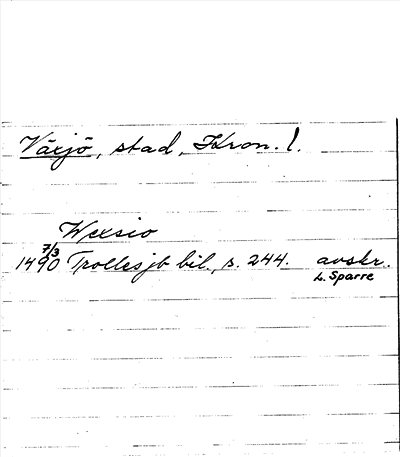 Växjö, stad, Kron. l.
Wexsio
7/3
1490 Trollesjb bil., s. 244. avskr.
L. Sparre